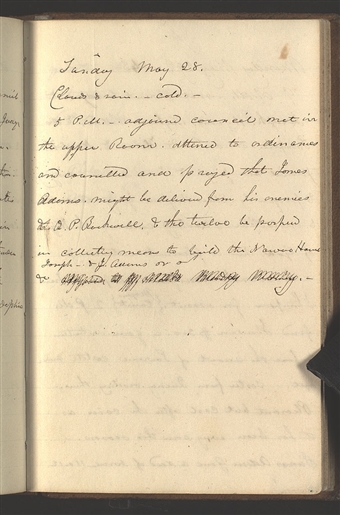 Sunday May 28.
Clouds & rain. - cold. -
5 P.M. - adjourned council met in
the upper Room. attened to ordinances
and councelled and prayed that James
Adams. might be delivered from his enemies
& O. P. Rockwell, & the twelve be prosperd
in collecting means to build the Nauvoo House
Joseph - & J. Adams
&